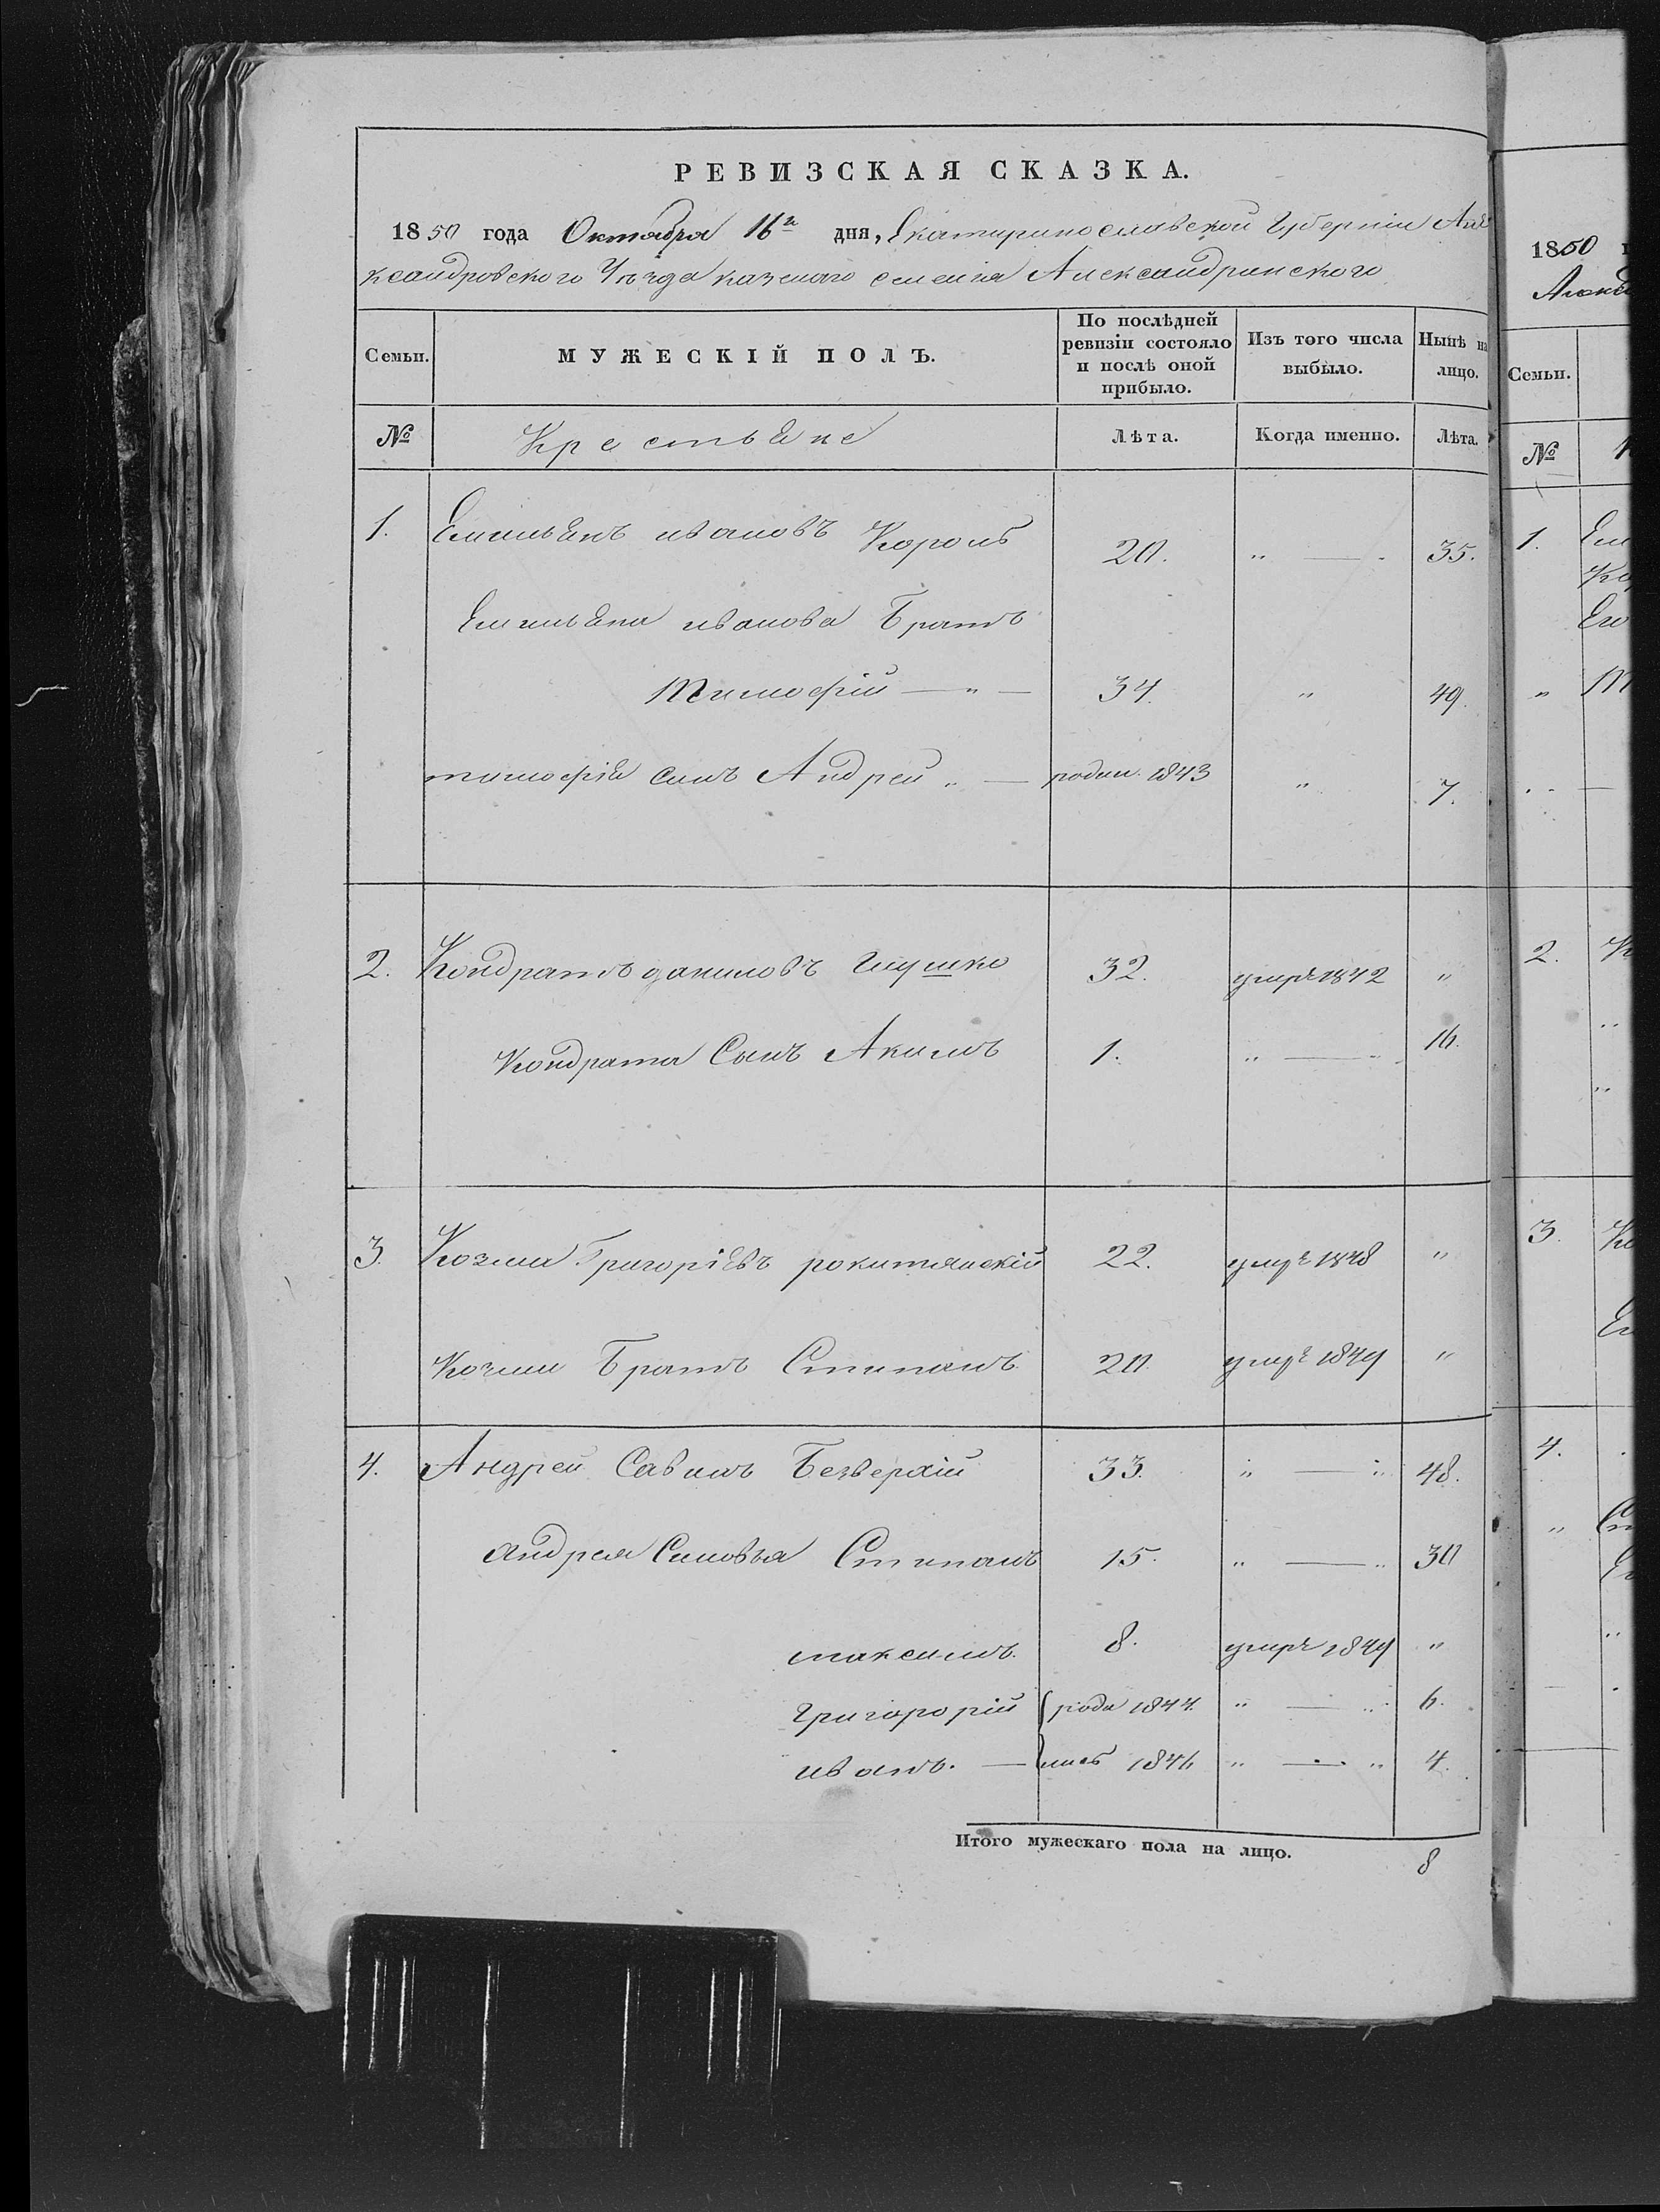 РЕВИЗСКАЯ СКАЗКА.
1850 года Октября 16го дня, Екатиринославской Губерніи Але
ксандровского Уѣзда казеного селенія Александринского
Семьи. МУЖЕСКІЙ ПОЛЪ. По послѣдней ревизіи состояло и послѣ оной прибыло. Изъ того числа выбыло. Нынѣ на лицо.
№ Крестьяне Лѣта. Когда именно. Лѣта.
1. Емильянъ ивановъ Король 20. " — . 35.
Емильяна иванова Братъ
Тимофій — " — 34. " 49.
тимофія синъ Андрей " — родил. 1843 " 7.
2. Кондратъ даниловъ Глушко 32. умрѣ 1842 "
Кондрата Синъ Акимъ 1. " — . 16.
3. Козма Григоріевъ рокитянскій 22. умрѣ 1848 "
Козми Братъ Стипанъ 20. умрѣ 1849 "
4. Андрей Савинъ Безверхій 33. " — " 48.
Андрея Синовья Стипанъ 15. " — " 30
максимъ 8. умрѣ 1849 "
Григорорій роди 1844. " — " 6.
иванъ. — лись 1846 " — " 4.
Итого мужескаго пола на лицо. 8
1850
Алекса
Семьи.
№
1. Еми
Ко
Его
" М
2. К
3. Ко
Ег
4.
" Сти
Ег